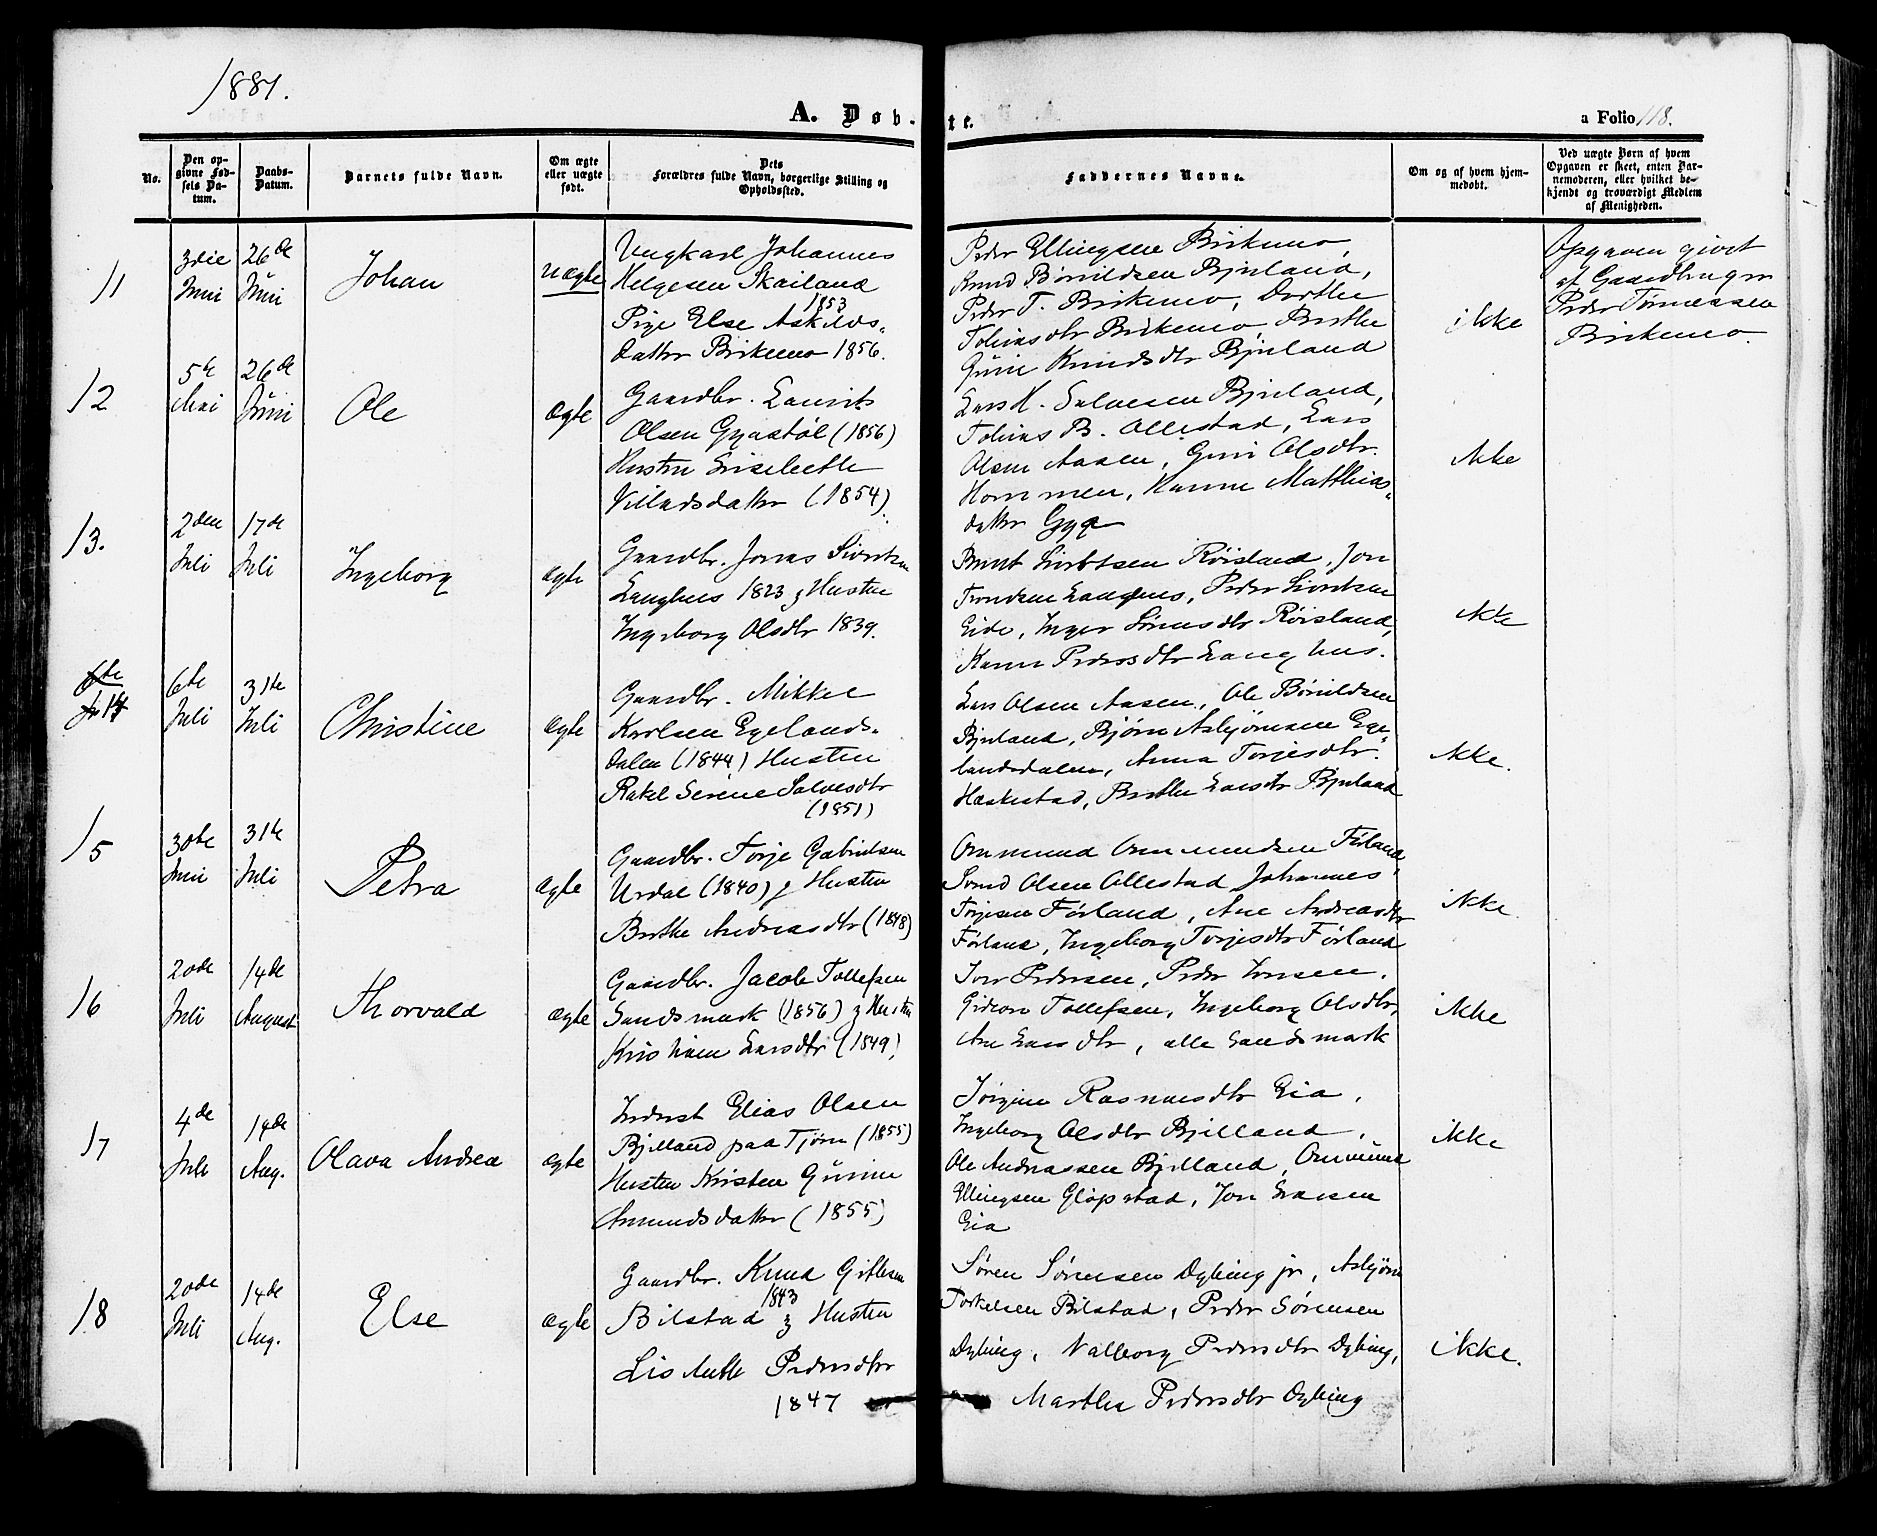 1881.
A. Døb-
te.
a Folio 118.
No.
Den op-
givne Fød-
sels Da-
tum.
Daabs-
Datum.
Barnets fulde Navn.
Om ægte
eller uægte
født.
Dets
Forældres fulde Navn, borgerlige Stilling og
Opholdssted.
Faddernes Navne.
Om og af hvem hjem-
medøbt.
Ved uægte Børn af hvem
Opgaven er skeet, enten Bar-
nemoderen, eller hvilket be-
kjendt og troværdigt Medlem
af Menigheden.
11
3die
Juni
26de
Juni
Johan
uægte
Ungkarl Johannes
Helgesen Skailand
1853
Pige Else Askilds-
datter Birkemo 1856.
Peder Ellingsen Birkemo,
Knud Børuldsen Bjuland,
Peder T. Birkemo, Dorthe
Tobiasdtr Birkemo, Berthe
Gurine Knudsdtr Bjuland
ikke
Opgaven givet
af Gaardbruger
Peder Tønnessen
Birkemo.
12
5te
Mai
26de
Juni
Ole
ægte
Gaardbr. Laurits
Olsen Gyastøl (1856)
Hustru Liselbeth
Villadsdatter (1854)
Lars H. Salvesen Bjuland,
Tobias B. Ollestad, Lars
Olsen Aasen, Guri Olsdtr.
Hommen, Hanne Matthias-
datter Gya
ikke
13.
2den
Juli
17de
Juli
Ingeborg
ægte
Gaardbr. Jonas Sivertsen
Langhus 1823 & Hustru
Ingeborg Olsdtr 1839.
Bernt Sivertsen Røisland, Jon
Trondsen Langhus, Peder Sivertsen
Eide, Inger Sørensdtr Røisland,
Karen Pedersdtr Langhus.
ikke
14
6te
Juli
31te
Juli
Christine
ægte
Gaardbr. Mikkel
Karlsen Egelands-
dalen (1844) Hustru
Rakel Serene Salvesdtr
(1851)
Lars Olsen Aasen, Ole Børuldsen
Bjuland, Bjørn Asbjørnsen Ege-
landsdalen, Anna Torjesdtr.
Hæskestad, Berthe Larsdtr Bjuland
ikke.
15
30te
Juni
31te
Juli
Petra
ægte
Gaardbr. Torje Gabrielsen
Urdal (1840) & Hustru
Berthe Andreasdtr (1848)
Ommund Ommundsen Førland,
Svend Olsen Ollestad, Johannes
Torjesen Førland, Ane Andreasdtr
Førland, Ingeborg Torjesdtr Førland
ikke
16
20de
Juli
14de
August
Thorvald
ægte
Gaardbr. Jacob Tollefsen
Sandsmark (1856) & Hustru
Kristiane Larsdtr (1849)
Iver Pedersen, Peder Iversen,
Gideon Tollefsen, Ingeborg Olsdtr,
Ane Larsdtr, alle Sandsmark
ikke
17
4de
Juli
14de
Aug.
Olava Andrea
ægte
Inderst Elias Olsen
Bjelland paa Tjørn (1855)
Hustru Kirsten Gurine
Amundsdatter (1855)
Jørgine Rasmusdtr Eia,
Ingeborg Olsdtr Bjelland,
Ole Andreassen Bjelland, Ommund
Ellingsen Gløpstad, Jon Larsen
Eia
ikke
18
20de
Juli
14de
Aug.
Else
ægte
Gaardbr. Knud Gitlesen
1843
Bilstad & Hustru
Lisabeth Pedersdtr
1847
Søren Sørensen Dybing jr, Asbjørn
Torkelsen Bilstad, Peder Sørensen
Dybing, Valborg Pedersdtr Dybing,
Marthe Pedersdtr Dybing
ikke.